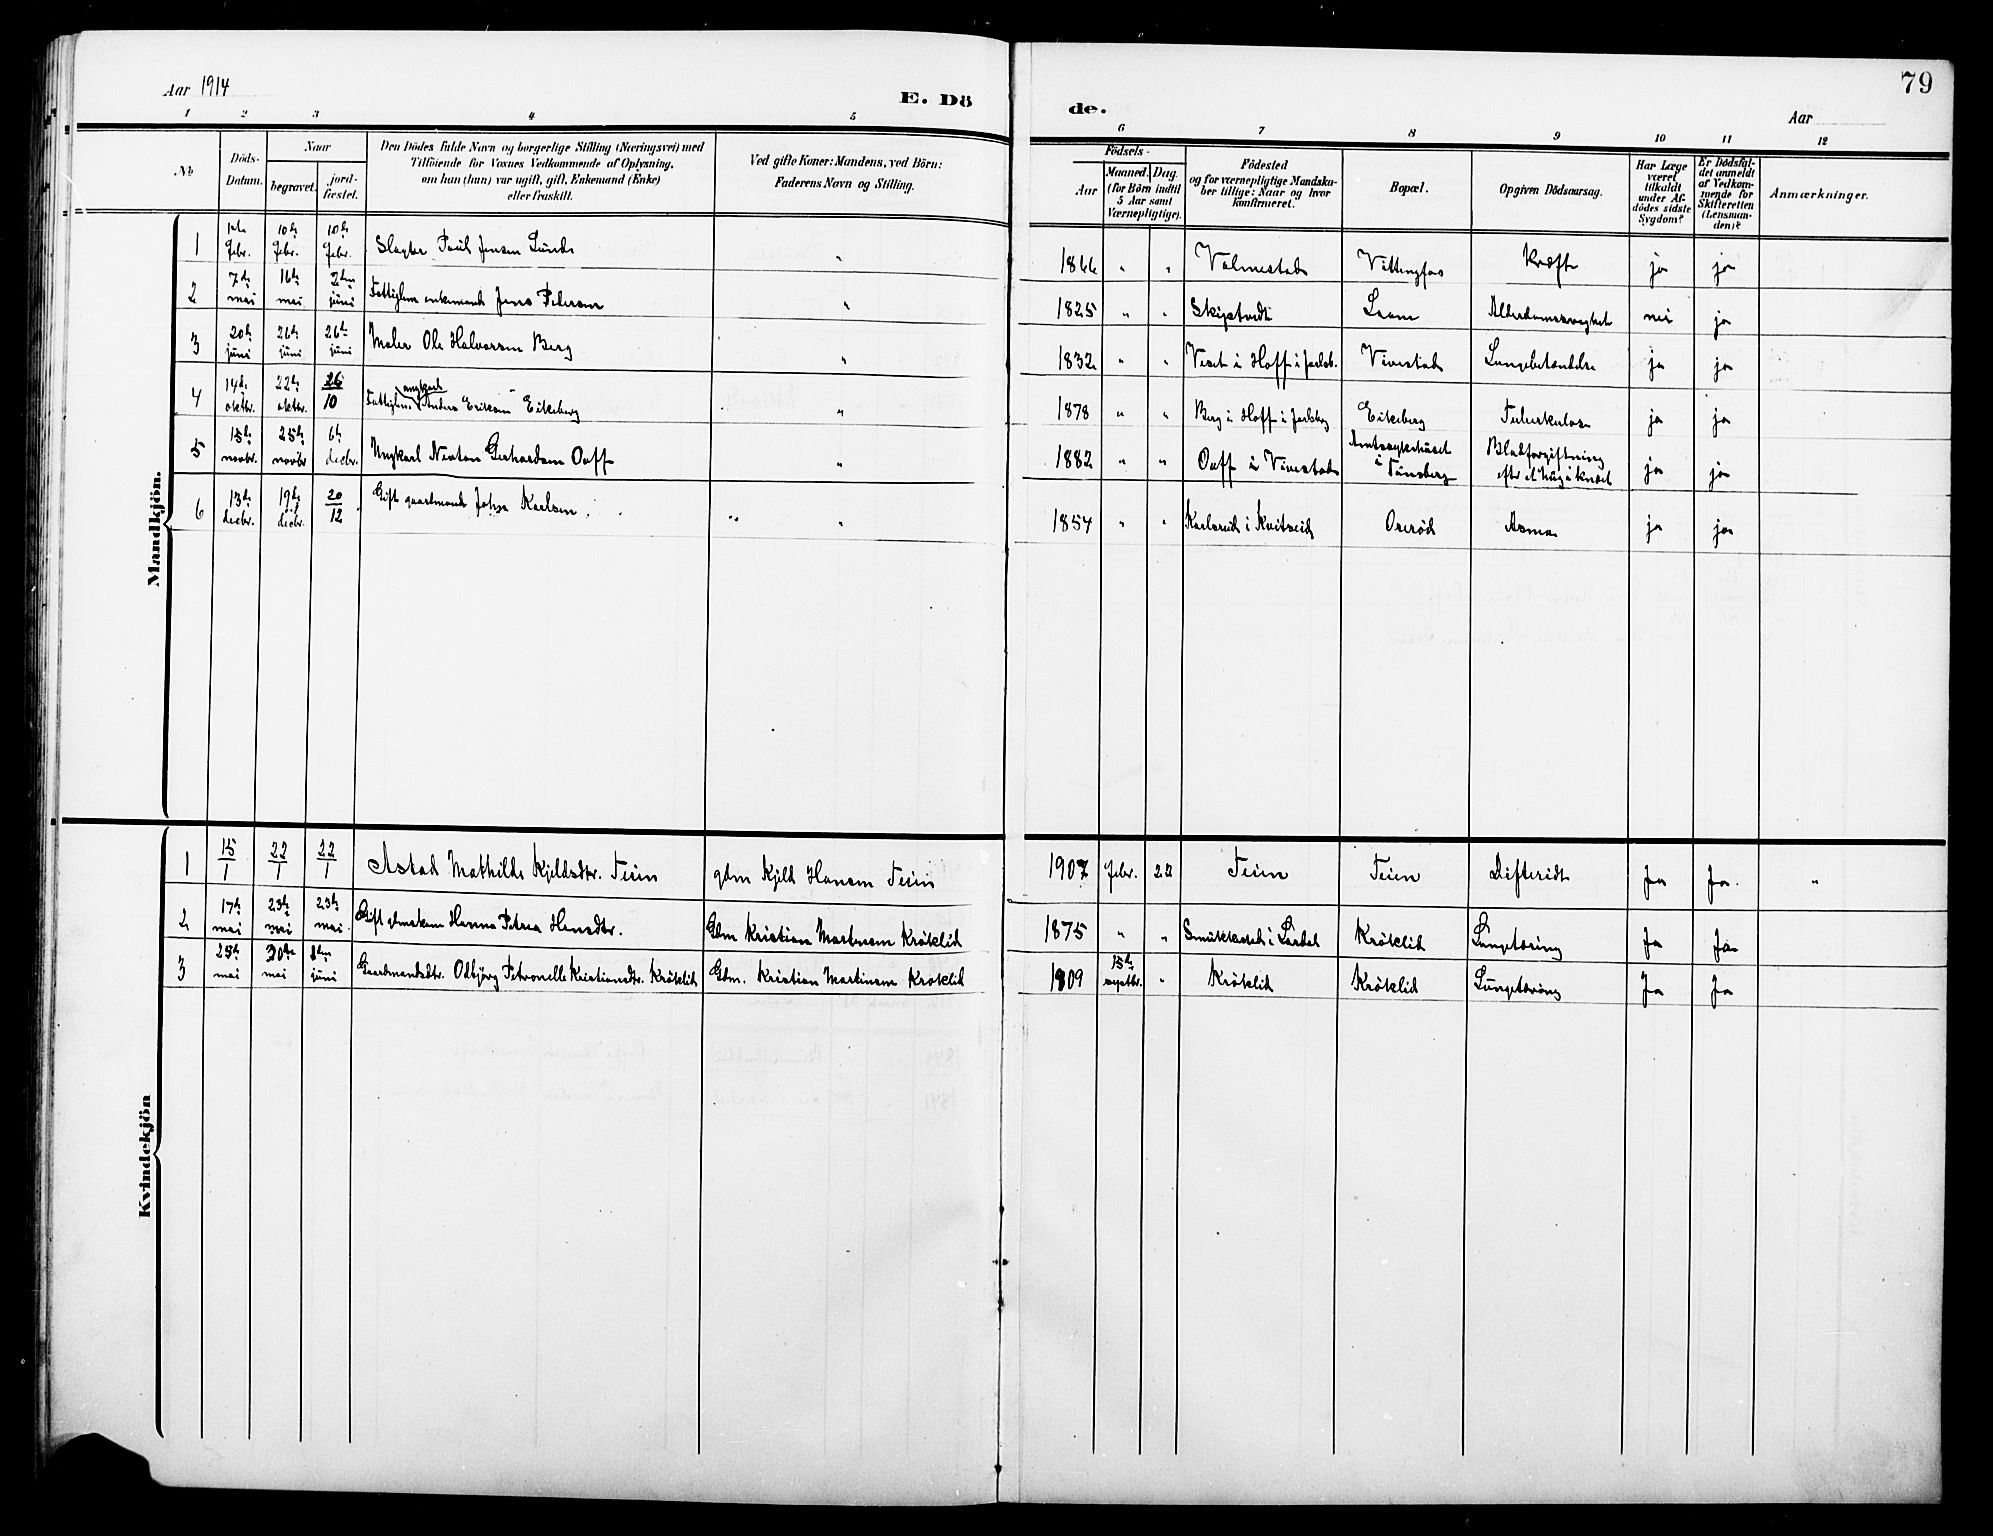 79
Aar 1914
E. Dö
de.
Aar
1 2 3 4 5 6 7 8 9 10 11 12
№
Döds-
Datum.
Naar
begravet.
jord-
fæstet.
Den Dödes fulde Navn og borgerlige Stilling (Næringsvei) med
Tilföiende for Voxnes Vedkommende af Oplysning,
om han (hun) var ugift, gift, Enkemand (Enke)
eller fraskilt.
Ved gifte Koner: Mandens, ved Börn:
Faderens Navn og Stilling.
Födsels-
Aar
Maaned. Dag.
(for Börn indtil
5 Aar samt
Værnepligtige).
Födested
og for værnepligtige Mandska-
ber tillige: Naar og hvor
konfirmeret.
Bopæl.
Opgiven Dödsaarsag.
Har Læge
været
tilkaldt
under Af-
dödes sidste
Sygdom?
Er Dödsfal-
det anmeldt
af Vedkom-
mende for
Skifteretten
(Lensman-
den)?
Anmærkninger.
Mandkjön.
1 1ste febr. 10de febr. 10de febr. Slagter Paul Jensen Lunde " 1866 " " Valmestad Vittingfos Kræft ja ja
2 7de mai 16de mai 2den juni Fattiglem enkemand Jens Pedersen " 1825 " " Skiptvedt Alderdomssvaghet nei ja
3 20de juni 26de juni 26de juni Maler Ole Halvorsen Berg " 1832 " " i Hoff i Jarlsb. Vivestad Lungebetændelse ja ja
4 14de oktbr. 22de oktbr. 26/10 Fattiglem ungkarl Anders Eriksen Eikeberg " 1878 " " Berg i Hoff i Jarlsberg Eikeberg Tuberkulose ja ja
5 15de novbr. 25de novbr 6te decbr. Ungkarl Newton Gerhardsen Oaff " 1882 " " Oaff i Vivestad Amtssykehuset i Tønsberg Blodforgiftning efter et hug i knæet ja ja
6 13de decbr. 19de decbr. 20/12 Gift gaardmand Johan Karlsen " " 1854 " " i Kvitseid Ozerød Asma ja ja
Kvindekjön
1 15/1 22/1 22/1 Astad Mathilde Kjeldsdtr. Feien gdm Kjeld Hansen Feien 1907 febr. 22 Feien Feien Difteridt Ja Ja. "
2 17de mai 23de mai 23de mai. Gift gdmskone Hanna Petrea Hansdtr. Gdm Kristian Martinsen Krøklid 1875 " " i Lardal Krøklid Lungetæring Ja Ja
3 25de mai 30te mai 2den juni Gaardmandsdtr. Odbjørg Petronelle Kristiansdtr. Krøklid Gdm. Kristian Martinsen Krøklid 1909 15de septbr. " Krøklid Krøklid Lungetæring Ja Ja